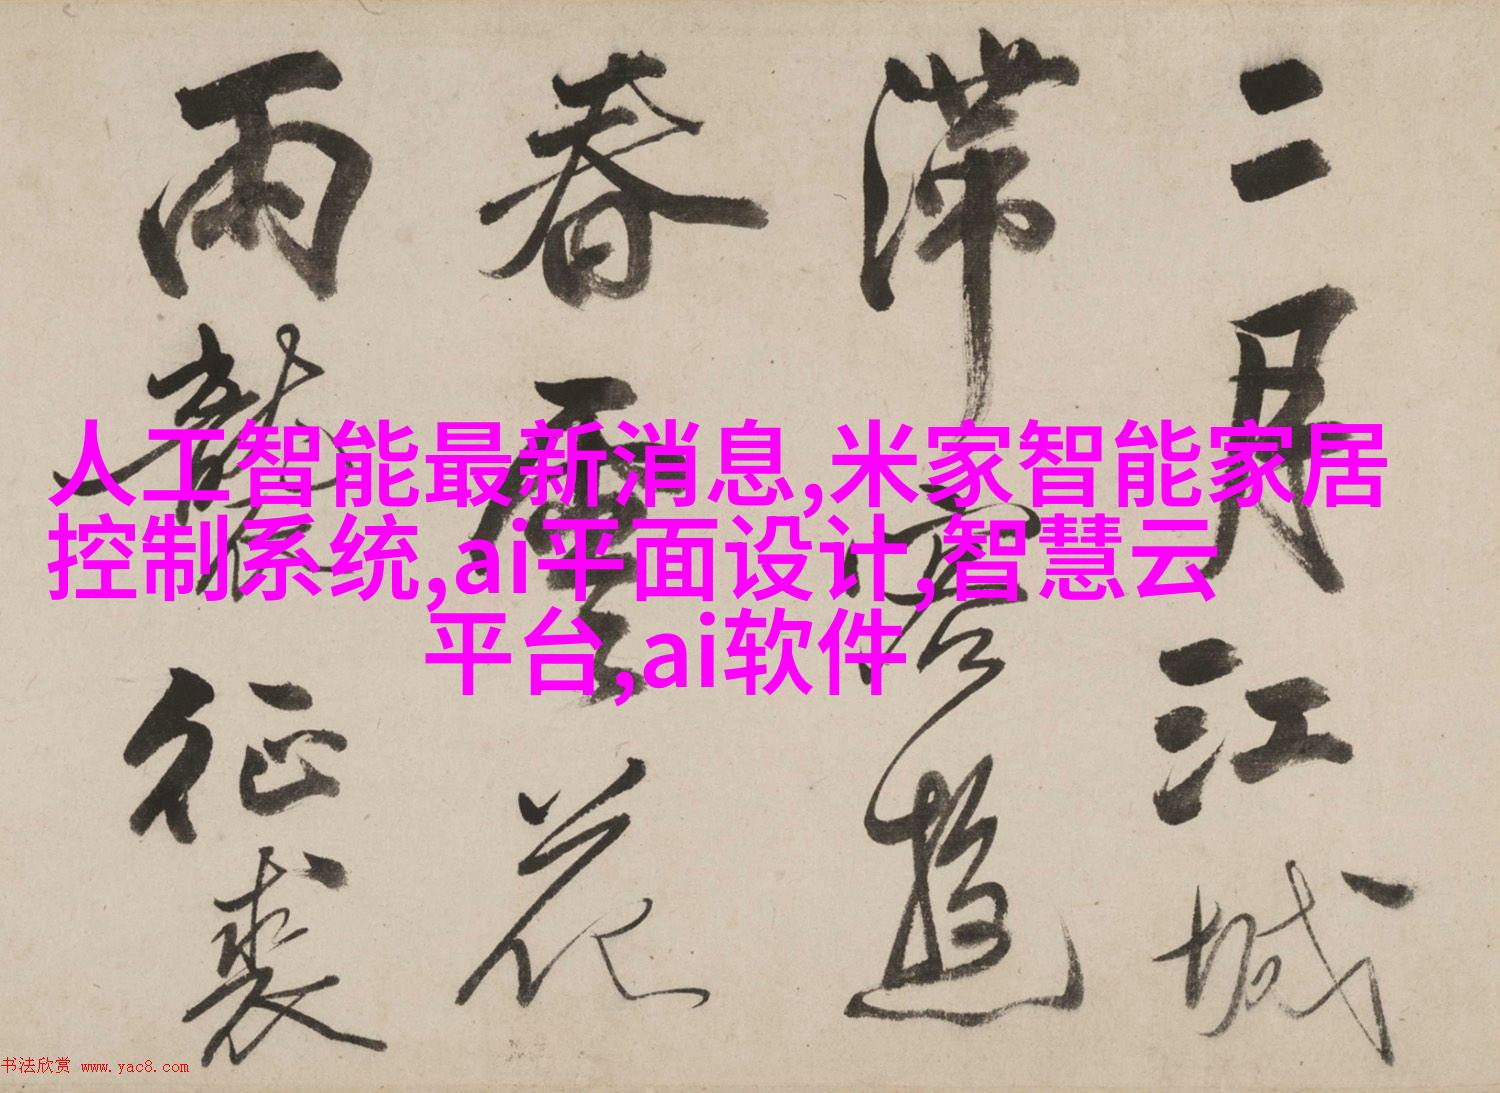 二月江城
滯客遊
春雲花
雨襲征裘
人工智能最新消息,米家智能家居
控制系统,ai平面设计,智慧云
平台,ai软件
书法欣赏 www.yac8.com